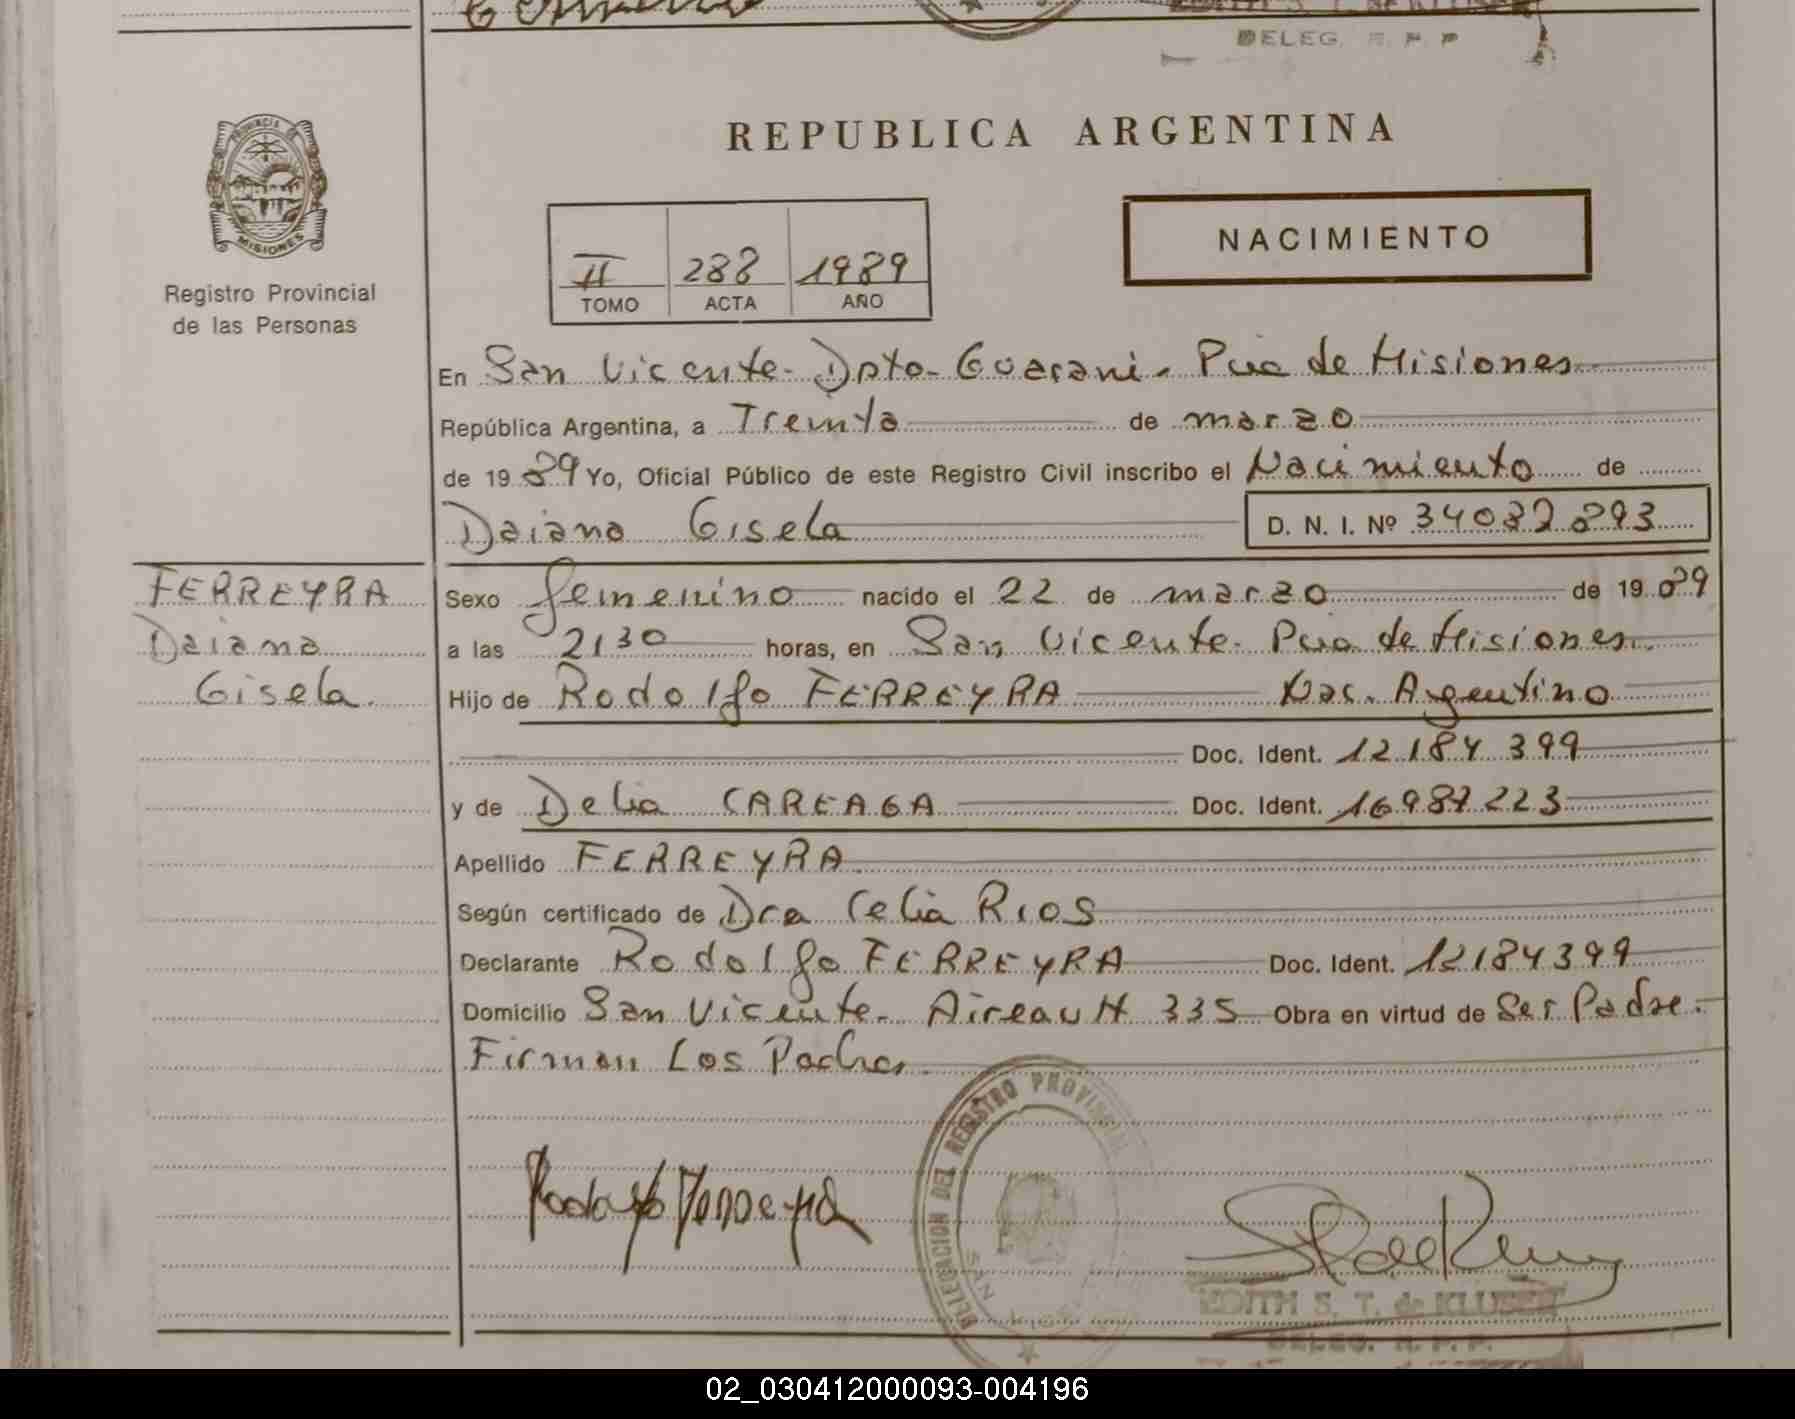 DELEG. R. P. P
PROVINCIA DE
MISIONES
Registro Provincial
de las Personas
REPUBLICA ARGENTINA
II 288 1989
TOMO ACTA AÑO
NACIMIENTO
En San Vicente - Dpto - Guarani - Pcia de Misiones
República Argentina, a Treinta de marzo
de 19 89 Yo, Oficial Público de este Registro Civil inscribo el Nacimiento de
Daiana Gisela D. N. I. Nº 34032893
FERREYRA
Daiana
Gisela.
Sexo femenino nacido el 22 de marzo de 19 89
a las 2130 horas, en San Vicente - Pcia de Misiones.
Hijo de Rodolfo FERREYRA Nac. Argentino
Doc. Ident. 12.184.399
y de Delia CAREAGA Doc. Ident. 16987223
Apellido FERREYRA
Según certificado de Dra Celia RIOS
Declarante Rodolfo FERREYRA Doc. Ident. 12184399
Domicilio San Vicente - 335 Obra en virtud de Ser Padre.
Firman Los Padres.
DELEGACION DEL REGISTRO PROVINCIAL
SAN
Rodolfo Ferreyra
EDITH S. T. de KLUSER
DELEG. R. P. P.
02_030412000093-004196